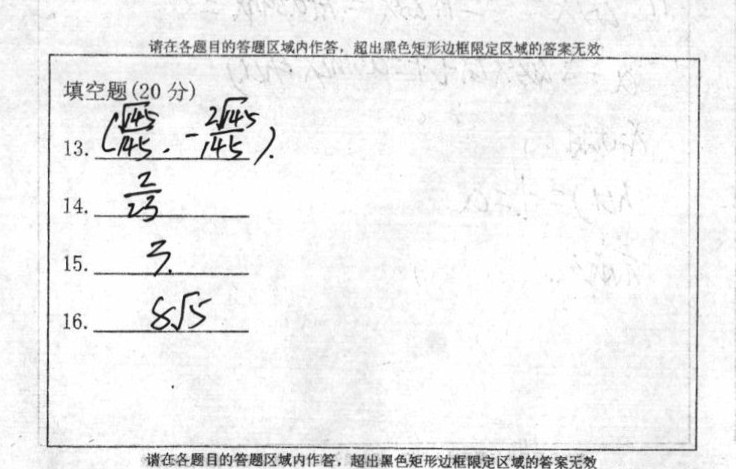 请在各题目的答题区域内作答，超出黑色矩形边框限定区域的答案无效
填空题(20 分)
13. (√145/145, -2√145/145).
14. 2/23
15. 3.
16. 8√5
请在各题目的答题区域内作答，超出黑色矩形边框限定区域的答案无效